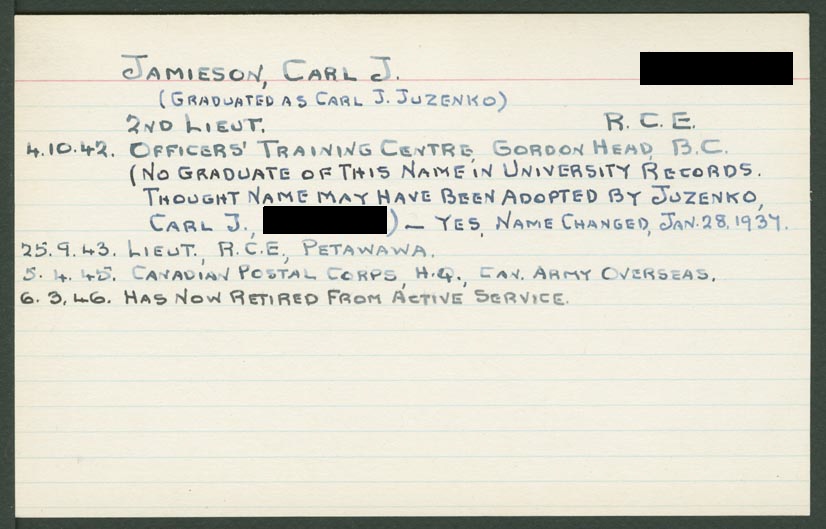 JAMIESON, CARL J.
(GRADUATED AS CARL J. JUZENKO)
2ND LIEUT. R.C.E.
4.10.42. OFFICERS' TRAINING CENTRE, GORDON HEAD, B.C.
(NO GRADUATE OF THIS NAME IN UNIVERSITY RECORDS.
THOUGHT NAME MAY HAVE BEEN ADOPTED BY JUZENKO,
CARL J., ) – YES, NAME CHANGED, JAN. 28, 1937.
25.9.43. LIEUT., R.C.E., PETAWAWA.
5.4.45. CANADIAN POSTAL CORPS, H.Q., CAN. ARMY OVERSEAS.
6.3.46. HAS NOW RETIRED FROM ACTIVE SERVICE.